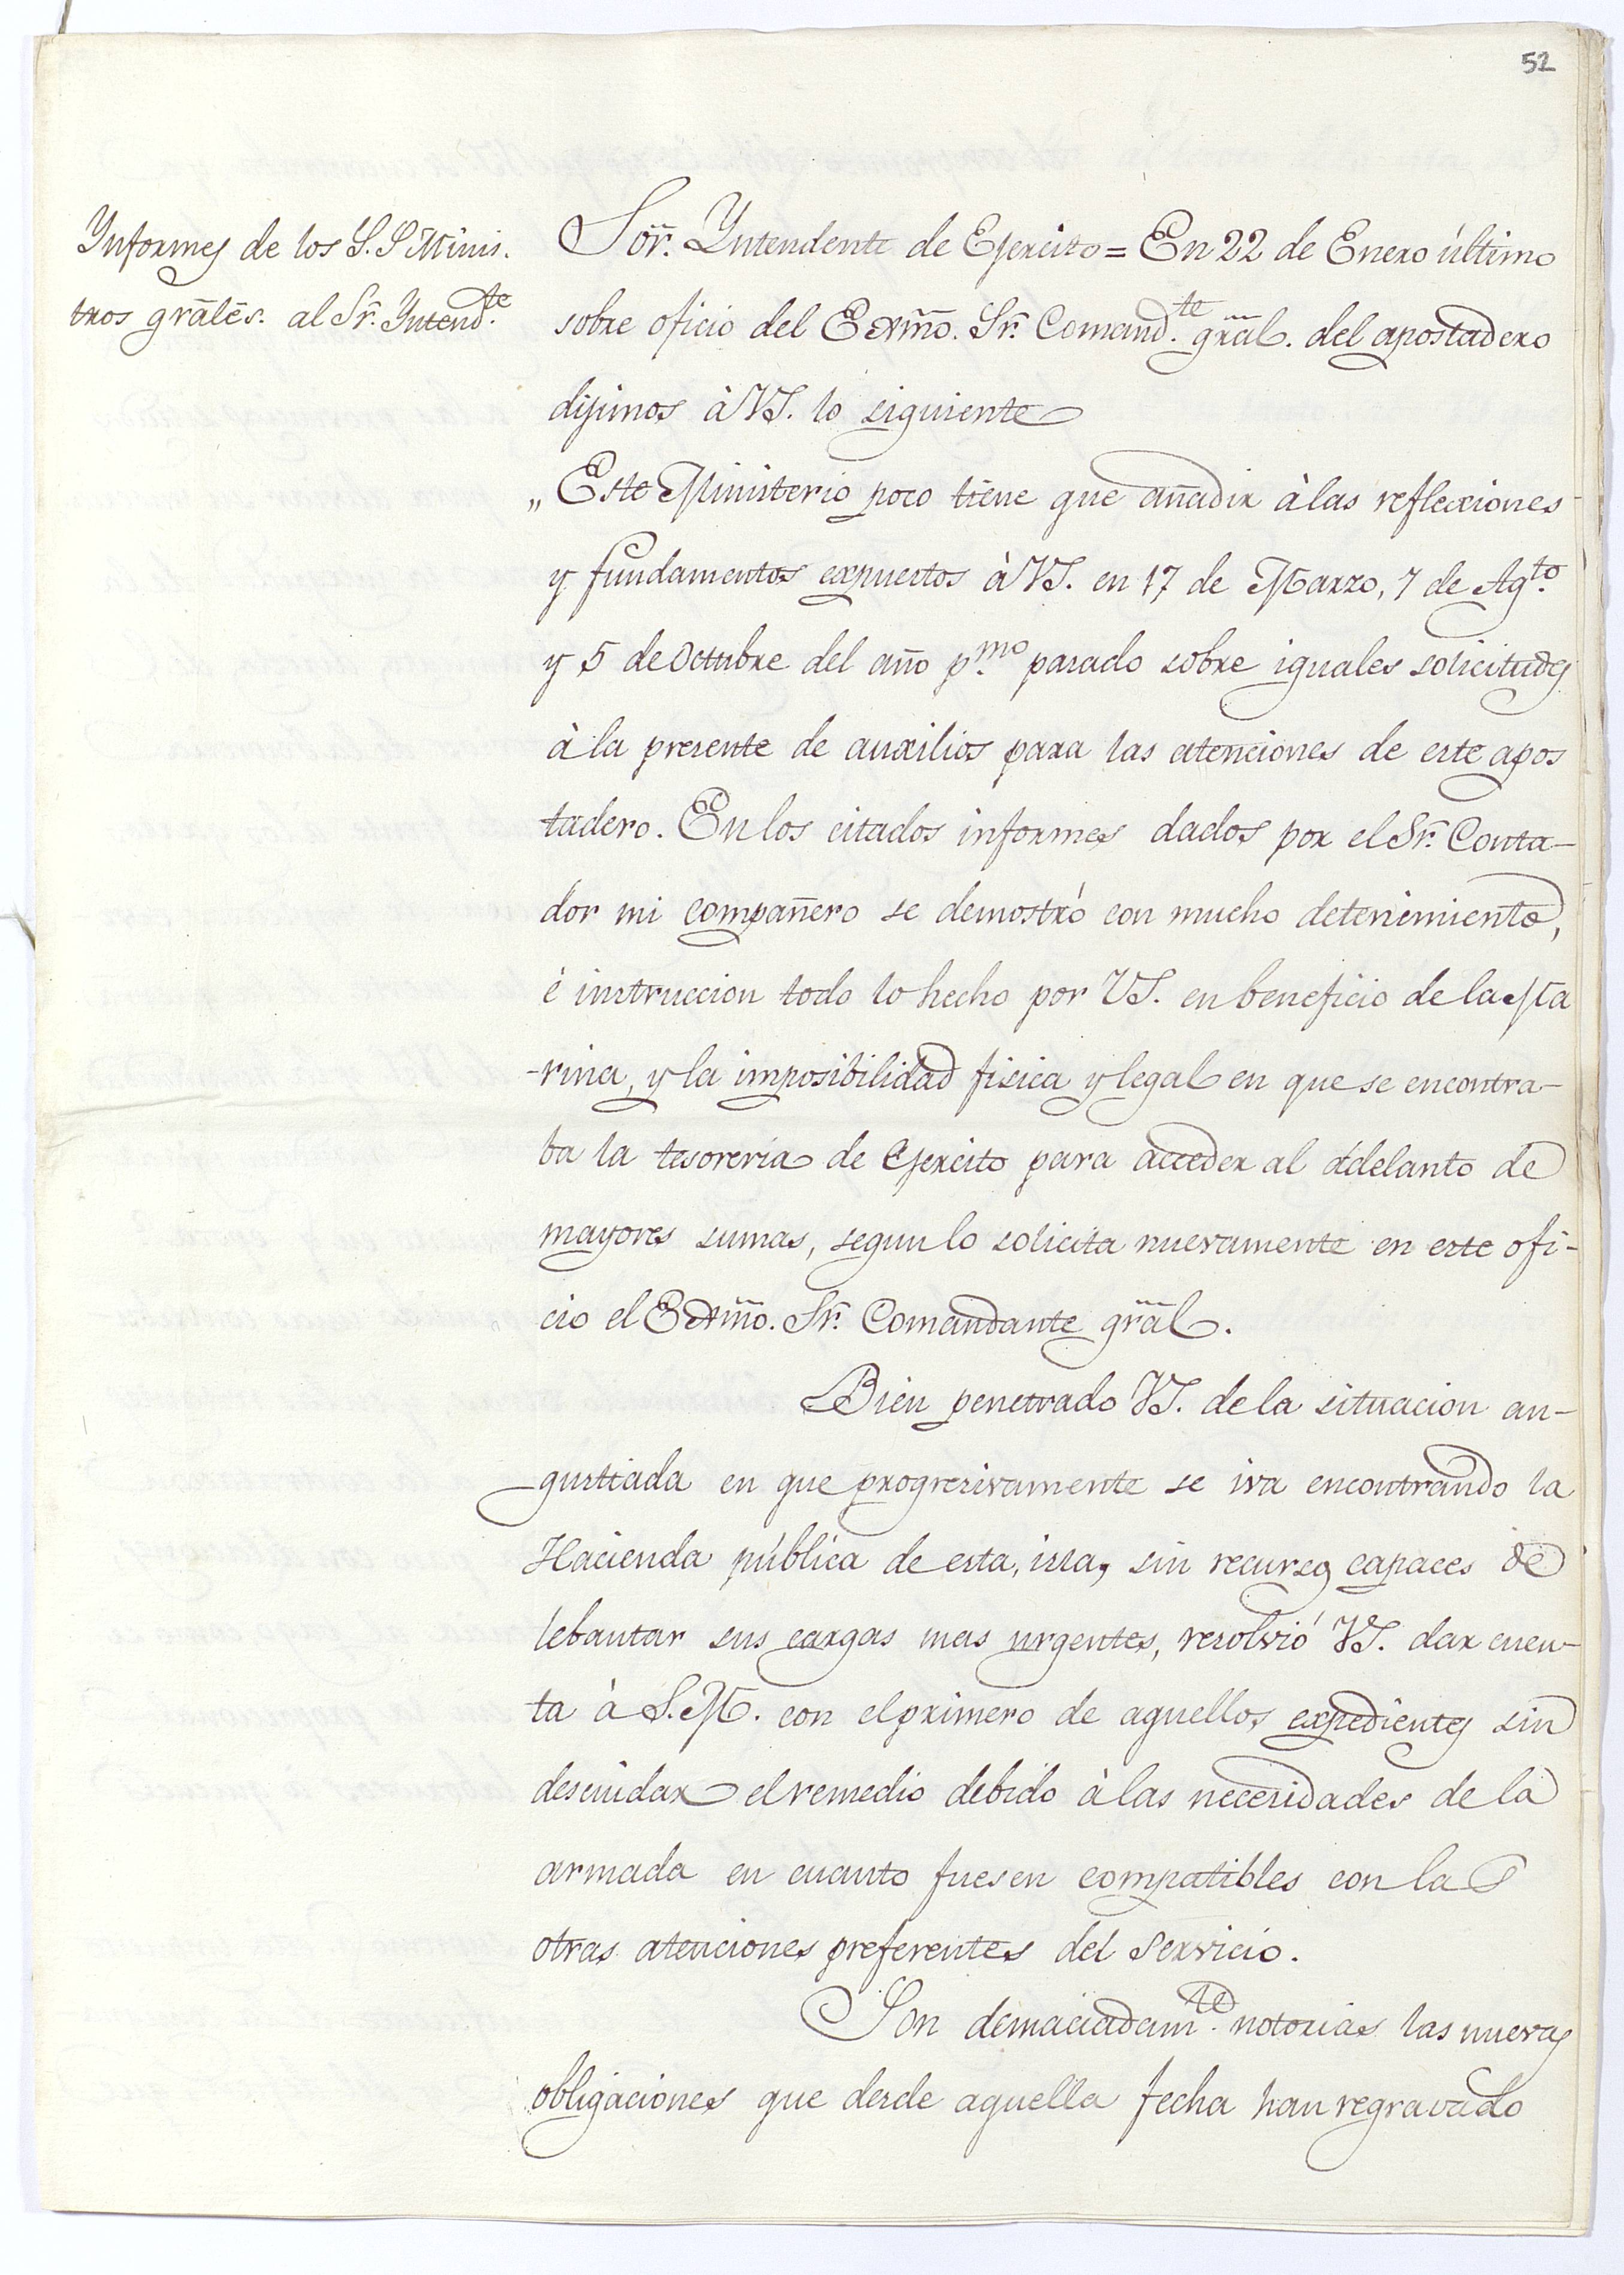 52
Ynformes de los S.S Minis.
tros grāles. al Sr. Yntend.te
Sor̃. Yntendente de Ejercito = En 22 de Enero último
sobre oficio del Exm̃o. Sr. Comand.te gr̃al. del apostadero
dijimos à VS. lo siguiente
„ Este Ministerio poco tiene que añadir à las reflecxiones
y fundamentos expuestos à VS. en 17 de Marzo, 7 de Ag.to
y 5 de Octubre del año p.mo pasado sobre iguales solicitudes
à la presente de auxilios para las atenciones de este apos
tadero. En los citados informes dados por el Sr. Conta-
dor mi compañero se demostró con mucho detenimiento,
é instruccion todo lo hecho por VS. en beneficio de la Ma
-rina, y la imposibilidad fisica y legal en que se encontra-
ba la tesoreria de Ejercito para acceder al ádelanto de
mayores sumas, segun lo solicita nuevamente en este ofi-
cio el Exm̃o. Sr. Comandante gr̃al.
Bien penetrado VS. de la situacion an-
gustiada en que progresivamente se iva encontrando la
Hacienda pública de esta, isla, sin recursos capaces de
lebantar sus cargas mas urgentes, resolvió VS. dar cuen-
ta à S.M. con el primero de aquellos expedientes sin
descuidar el remedio debido à las necesidades de la
armada en cuanto fuesen compatibles con las
otras atenciones preferentes del servicio.
Son demaciadam.te notorias las nuevas
obligaciones que desde aquella fecha han regravado